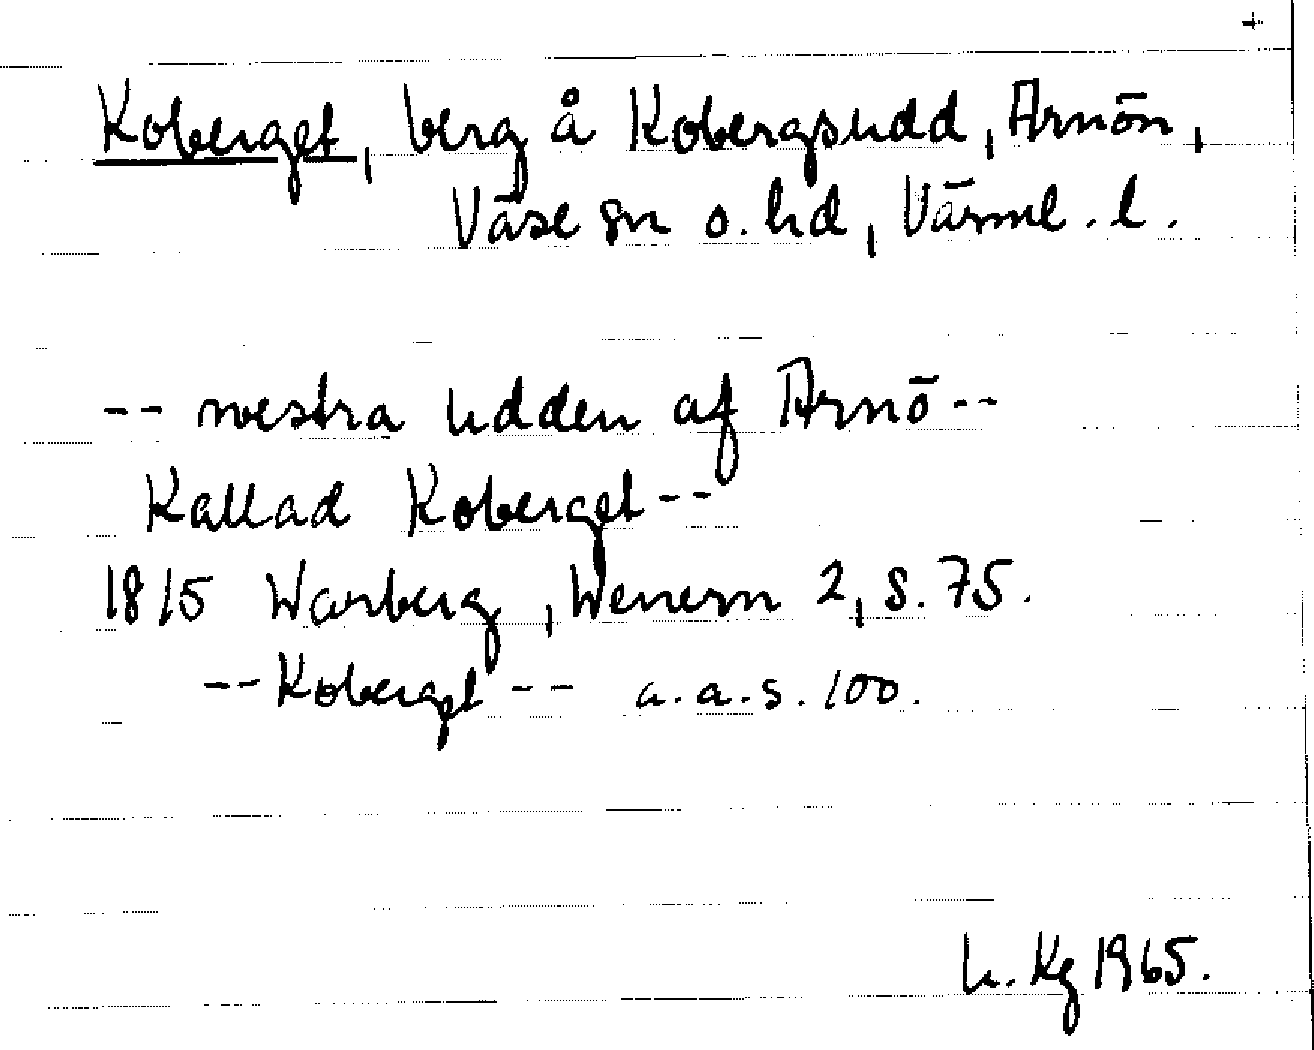 +
Koberget, berg å Kobergsudd, Arnön,
Väse sn o. hd, Värml. l.
-- westra udden af Arnö --
Kallad Koberget --
1815 Warberg, Wenern 2, s. 75.
-- Koberget -- a.a.s. 100.
h. Kg 1965.